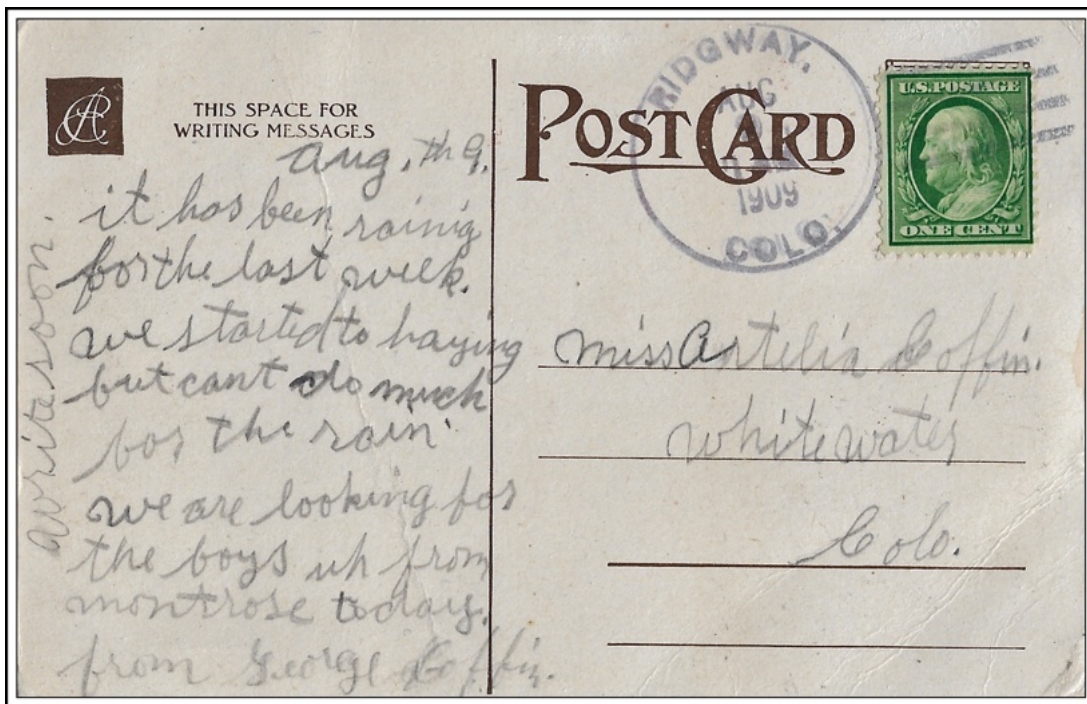 THIS SPACE FOR
WRITING MESSAGES
aug. th 9.
it has been rainig
for the last week.
we started to haying
but cant do much
for the rain.
we are looking for
the boys up from
montrose today.
from George Coffin.
write soon.
POST CARD
RIDGWAY,
AUG
9
1909
COLO.
U.S. POSTAGE
ONE CENT
miss Artelia Coffin.
whitewater
Colo.